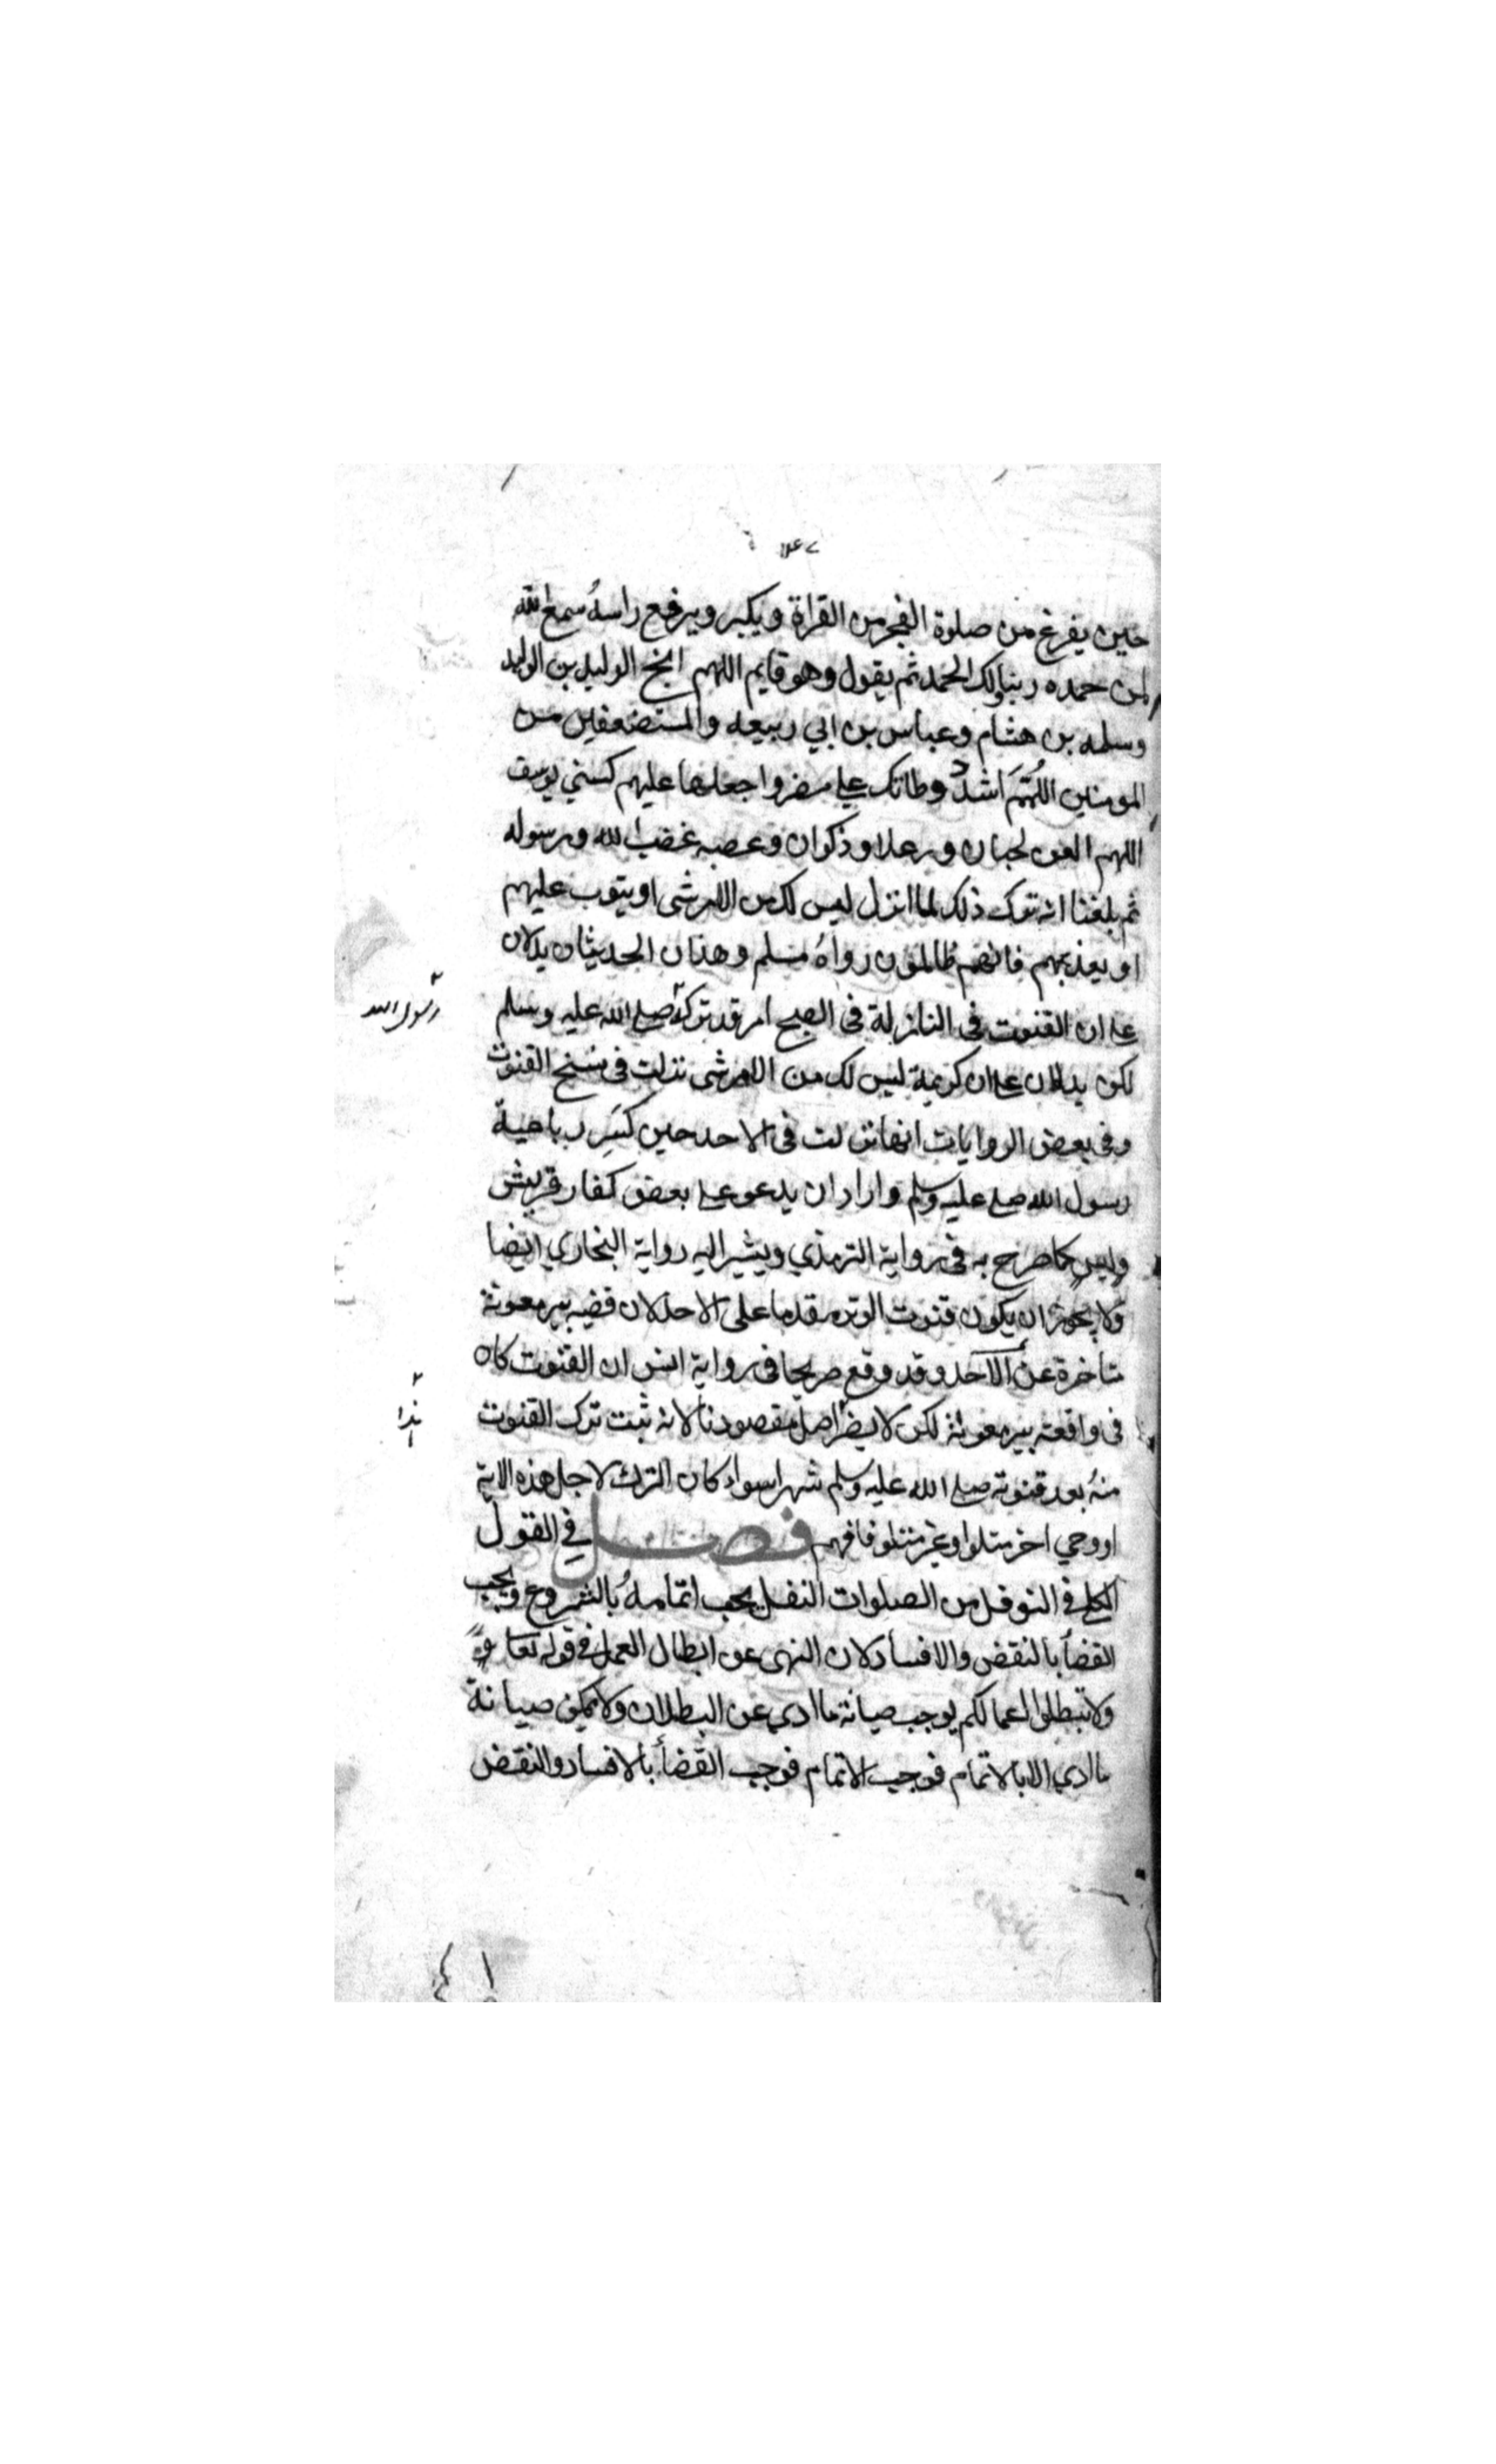 حين يفرغ من صلوة الفجر من القراة ويكبر ويرفع راسهُ سمع الله
لمن حمده ربنا ولك الحمد ثم يقول وهو قايم اللهم انج الوليد بن الوليد
وسلمه بن هشام وعباس بن ابي ربيعه والمستضعفين من
المومنين اللهم اشدد وطاتك على مضر واجعلها عليهم كسني يوسف
اللهم العن لحيان ورعلا وذكوان وعصيه غضب الله ورسوله
ثم بلغنا انه ترك ذلك لما انزل ليس لك من الامر شى او يتوب عليهم
او يعذبهم فانهم ظالمون رواهُ مسلم وهذان الحديثان يدلان
على ان القنوت فى النازلة فى الصبح امر قد تركه صلى الله عليه وسلم
رسول الله
لكن يدلان على ان كريمة ليس لك من الامر شى نزلت فى نسخ القنوت
وفى بعض الروايات انها نزلت فى الاحد حين كسر رباعية
رسول الله صلى عليه وسلم واراد ان يدعو على بعض كفار قريش
وليس كما صرح به فى رواية الترمذي ويشير اليه رواية البخاري ايضا
ولا يجوز ان يكون قنوت الوتر مقدما على الاحد لان قضيه بير معونة
متاخرة عن الاحد وقد وقع صريحا فى رواية انس ان القنوت كان
فى واقعته بير معونة لكن لا يضر اصل مقصودنا لانه ثبت ترك القنوت
منهُ بعد قنوته صلى الله عليه وسلم شهرا سواء كان الترك لاجل هذه الاية
او وحي اخر متلوا وغير متلو فافهم فصل في القول
الكلى فى النوفل من الصلوات النفل يجب اتمامهُ بالشروع ويجب
القضأ بالنقض والافساد لان النهى عن ابطال العمل فى قوله تعا
ولا تبطلوا اعمالكم يوجب صيانة ما ادى عن البطلان ولا يمكن صيانة
ما ادي الا بالاتمام فوجب الاتمام فوجب القضأ بالافساد والنقض